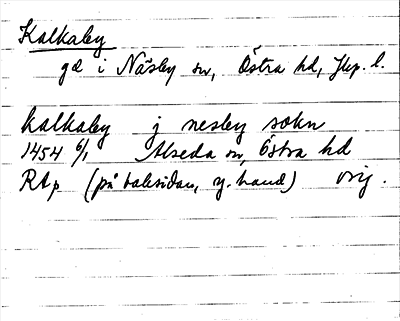 Kalkaby
gd i Näsby sn, Östra hd, Jkp. l.
kalkaby j nesby sokn
1454 6/1 Alseda sn, Östra hd
RAp (på baksidan, y. hand) orig.